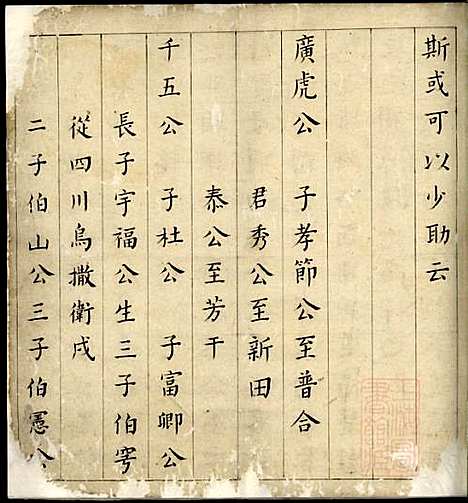 斯或可以少助云
廣虎公 子孝節公至普合
君秀公至新田
泰公至芳干
千五公 子杜公 子富卿公
長子宇福公生三子伯穹
從四川烏撒衛戍
二子伯山公三子伯憲公